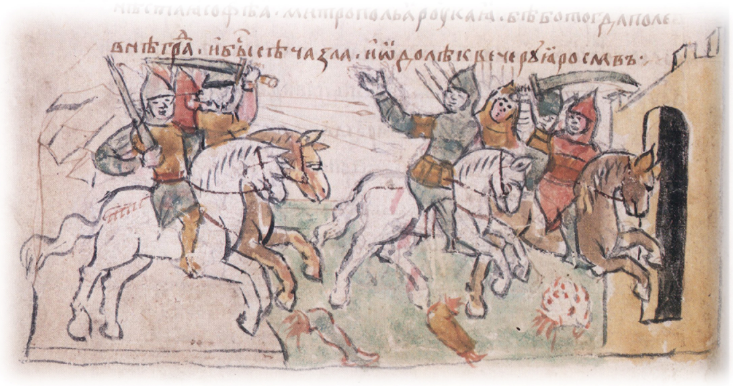 софѣа . митрополья роускаꙗ . бѣ бо тогда поле
внѣ граⷣ . и быⷭ сѣча зла . и ѡдолѣ к вечерꙋ ꙗрославъ .